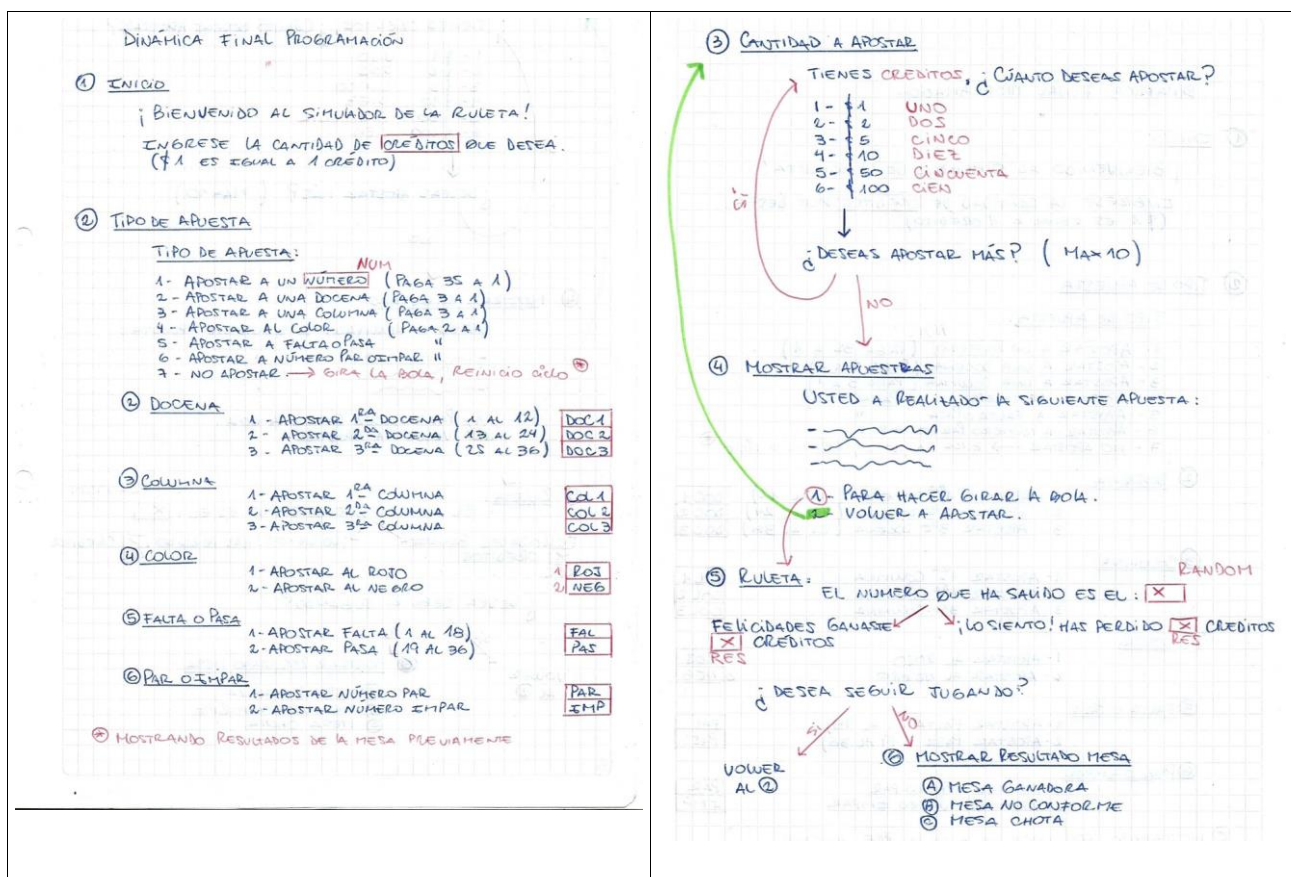 DINÁMICA FINAL PROGRAMACIÓN
① INICIO
¡BIENVENIDO AL SIMULADOR DE LA RULETA!
INGRESE LA CANTIDAD DE CRÉDITOS QUE DESEA.
($1 ES IGUAL A 1 CRÉDITO)
② TIPO DE APUESTA
TIPO DE APUESTA:
NUM
1- APOSTAR A UN NÚMERO (PAGA 35 A 1)
2- APOSTAR A UNA DOCENA (PAGA 3 A 1)
3- APOSTAR A UNA COLUMNA (PAGA 3 A 1)
4- APOSTAR AL COLOR (PAGA 2 A 1)
5- APOSTAR A FALTA O PASA "
6- APOSTAR A NÚMERO PAR O IMPAR "
7- NO APOSTAR. → GIRA LA BOLA, REINICIO CICLO *
② DOCENA
1- APOSTAR 1RA DOCENA (1 AL 12) DOC1
2- APOSTAR 2DA DOCENA (13 AL 24) DOC2
3- APOSTAR 3RA DOCENA (25 AL 36) DOC3
③ COLUMNA
1- APOSTAR 1RA COLUMNA COL1
2- APOSTAR 2DA COLUMNA COL2
3- APOSTAR 3RA COLUMNA COL3
④ COLOR
1- APOSTAR AL ROJO 1 ROJ
2- APOSTAR AL NEGRO 2 NEG
⑤ FALTA O PASA
1- APOSTAR FALTA (1 AL 18) FAL
2- APOSTAR PASA (19 AL 36) PAS
⑥ PAR O IMPAR
1- APOSTAR NÚMERO PAR PAR
2- APOSTAR NÚMERO IMPAR IMP
* MOSTRANDO RESULTADOS DE LA MESA PREVIAMENTE
③ CANTIDAD A APOSTAR
TIENES CREDITOS, ¿CÚANTO DESEAS APOSTAR?
1- $1 UNO
2- $2 DOS
3- $5 CINCO
4- $10 DIEZ
5- $50 CINCUENTA
6- $100 CIEN
SÍ
¿DESEAS APOSTAR MÁS? (MAX 10)
NO
④ MOSTRAR APUESTRAS
USTED A REALIZADO LA SIGUIENTE APUESTA:
1- PARA HACER GIRAR LA BOLA.
2- VOLVER A APOSTAR.
RANDOM
⑤ RULETA:
EL NUMERO QUE HA SALIDO ES EL: X
FELICIDADES GANASTE ¡LO SIENTO! HAS PERDIDO X CREDITOS
X CREDITOS RES
RES
¿DESEA SEGUIR JUGANDO?
SI NO
VOLVER
AL ②
⑥ MOSTRAR RESULTADO MESA
Ⓐ MESA GANADORA
Ⓑ MESA NO CONFORME
Ⓒ MESA CHOTA